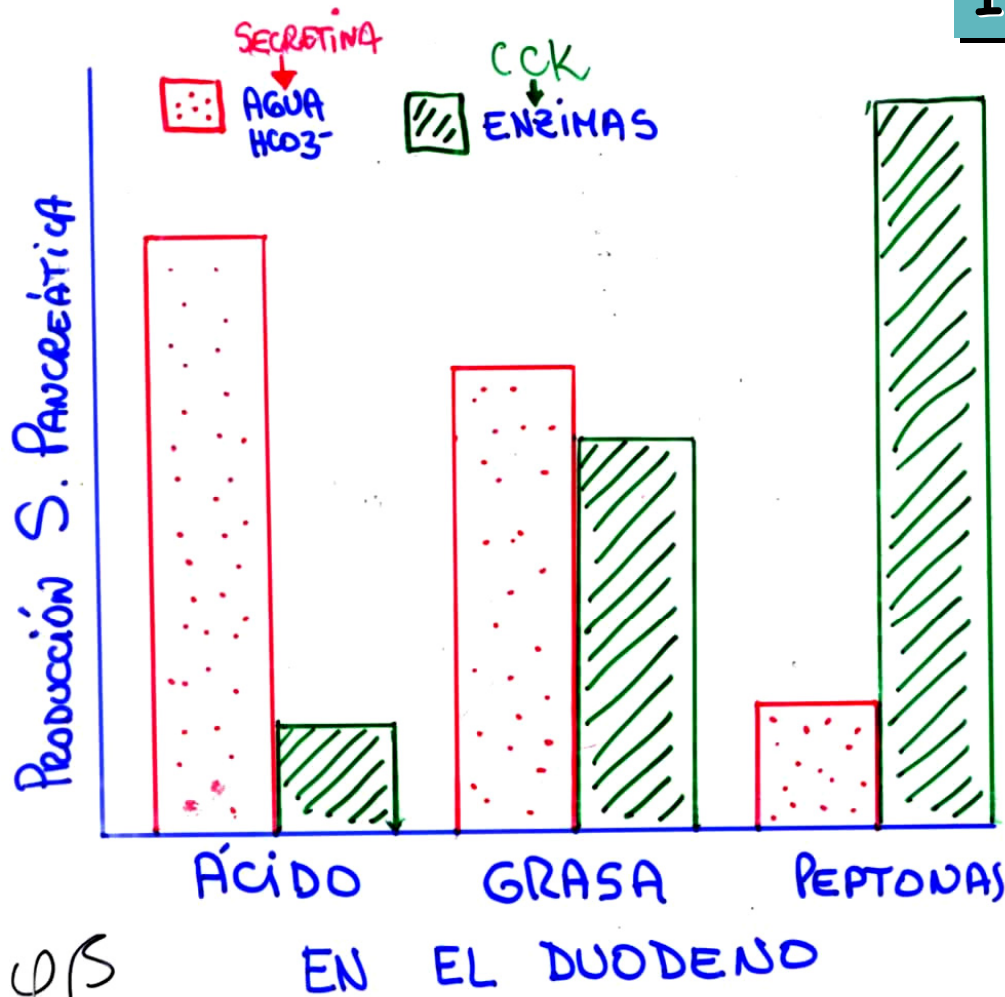 1
SECRETINA
CCK
AGUA
HCO3-
ENZIMAS
PRODUCCIÓN S. PANCREÁTICA
ÁCIDO
GRASA
PEPTONAS
EN EL DUODENO